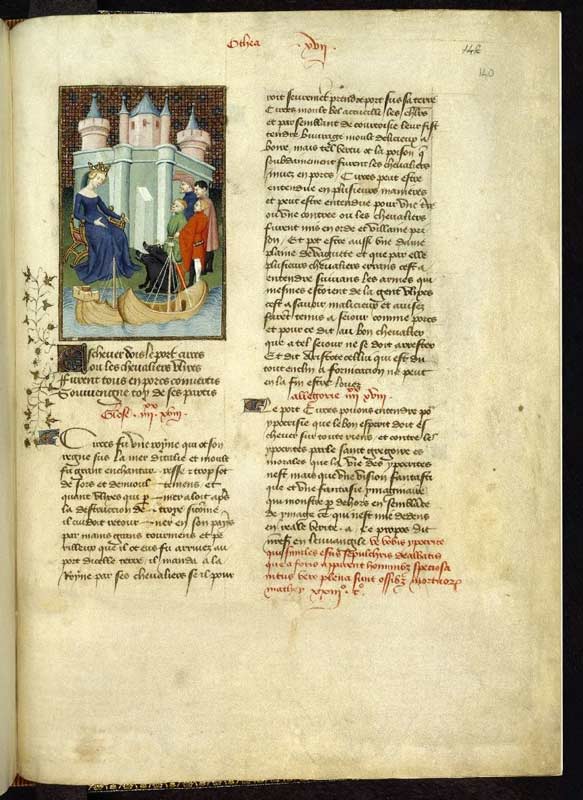 Othea .xvii.
148
140
Eschever dois le port Circes
ou les chevaliers Ulixes
Furent tous en porcs convertis
Souviengne toy de ses partis
Glose .iiii.xx xviii.
Circes fu une royne qui ot son
regne sus la mer d'itallie et moult
fu grant enchanterresse et trop sot
de sors et d'envoultemens et
quant Ulixes qui par mer aloit aps
la destruction de troye si come
il cuidoit retourner en son pays
par mains grans tourmens et pe
rilleux que il ot eus fu arrivez au
port d'icelle terre il manda a la
Royne par ses chevaliers se il pour
roit seurement prendre port sus sa terre
Circes moult bel accueilli les chlrs
et par semblant de courtoisie leur fist
tendre buvrage moult delicieux a
boire, mais tel vertu ot la poison q
soubdainement furent les chevaliers
muez en porcs Circes peut estre
entendue en plusieurs manieres
et peut estre entendue pour une
ou une contree ou les chevaliers
furent mis en orde et villaine pri
son, Et peut estre aussi une dame
plaine de vaguete et que par elle
plusieurs chevaliers errans c'est a
entendre suivans les armes qui
mesmes estoient de la gent Ulixes
c'est a savoir malicieux et avisez
furent tenus a sejour comme porcs
et pour ce dit au bon chevalier
que a tel sejour ne se doit arrester
Et dit Aristote cellui qui est du
tout enclin a fornicacion ne peut
en la fin estre louez
allegorie iiii xx xviii.
Le port Circes povons entendre po
ypocrisie que le bon esperit doit es
chever sur toute riens, et contre les
ypocrites parle saint gregoire es
morales que la vie des ypocrites
n'est mais que une vision fantasti
que et une fantasie ymaginaire
qui monstre par dehors en semblance
de ymage ce qui n'est mie dedens
en reale verite. A ce propos dit
en l'euvangile ve vobis ypocrite
qui similes estis sepulchris dealbatis
que a foris apparent hominibz speciosa
intus vero plena sunt ossibz mortuorum
mathei xxiii°. c°.